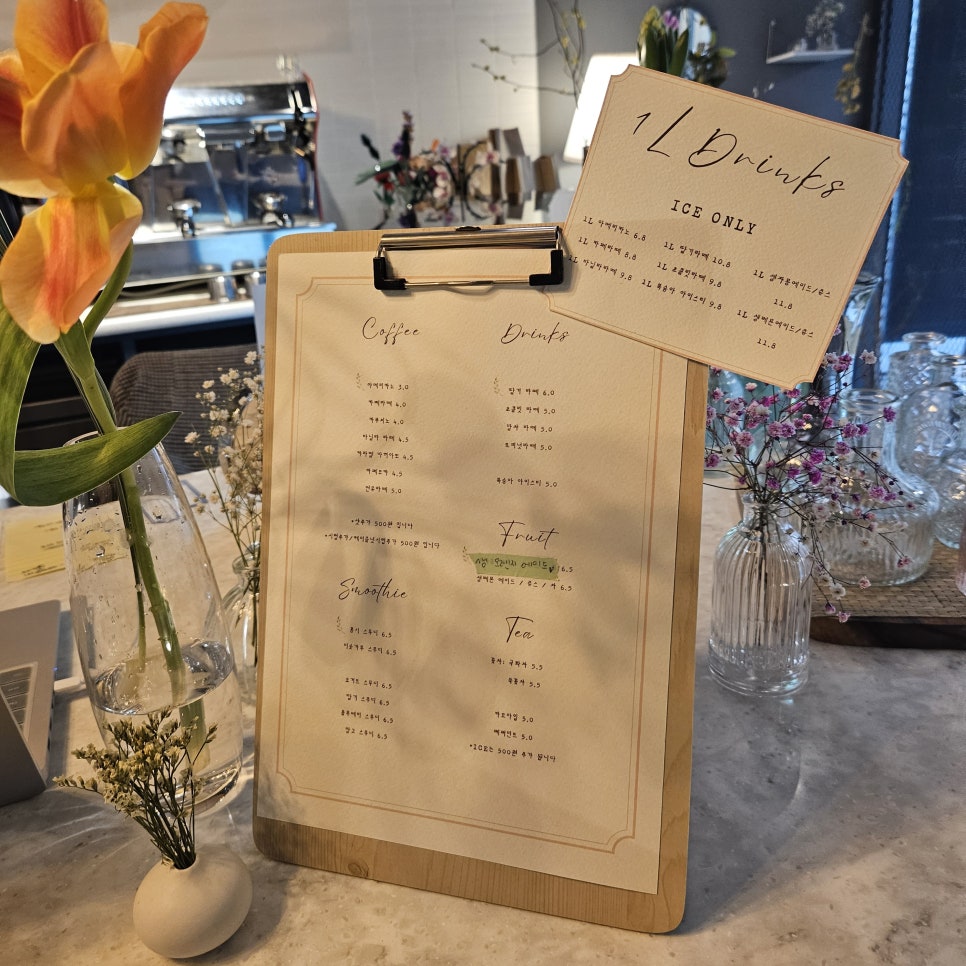 1L Drinks
ICE ONLY
1L 아메리카노 6.8
1L 카페라떼 8.8
1L 바닐라라떼 9.8
1L 딸기라떼 10.8
1L 초콜릿라떼 9.8
1L 복숭아 아이스티 9.8
1L 생자몽에이드/쥬스
11.8
1L 생레몬에이드/쥬스
11.8
Coffee
아메리카노 3.0
카페라떼 4.0
카푸치노 4.0
바닐라 라떼 4.5
카라멜 마끼아또 4.5
카페모카 4.5
연유라떼 5.0
*샷추가 500원 입니다
*시럽추가/헤이즐넛시럽추가 500원 입니다
Smoothie
딸기 스무디 6.5
요거트 스무디 6.5
블루베리 스무디 6.5
망고 스무디 6.5
Drinks
딸기 라떼 6.0
초콜릿 라떼 5.0
녹차 라떼 5.0
토피넛라떼 5.0
복숭아 아이스티 5.0
Fruit
생 오렌지 에이드♥ 6.5
생레몬 에이드 / 쥬스 / 차 6.5
Tea
꽃차: 국화차 5.5
캐모마일 5.0
페퍼민트 5.0
*ICE는 500원 추가 됩니다